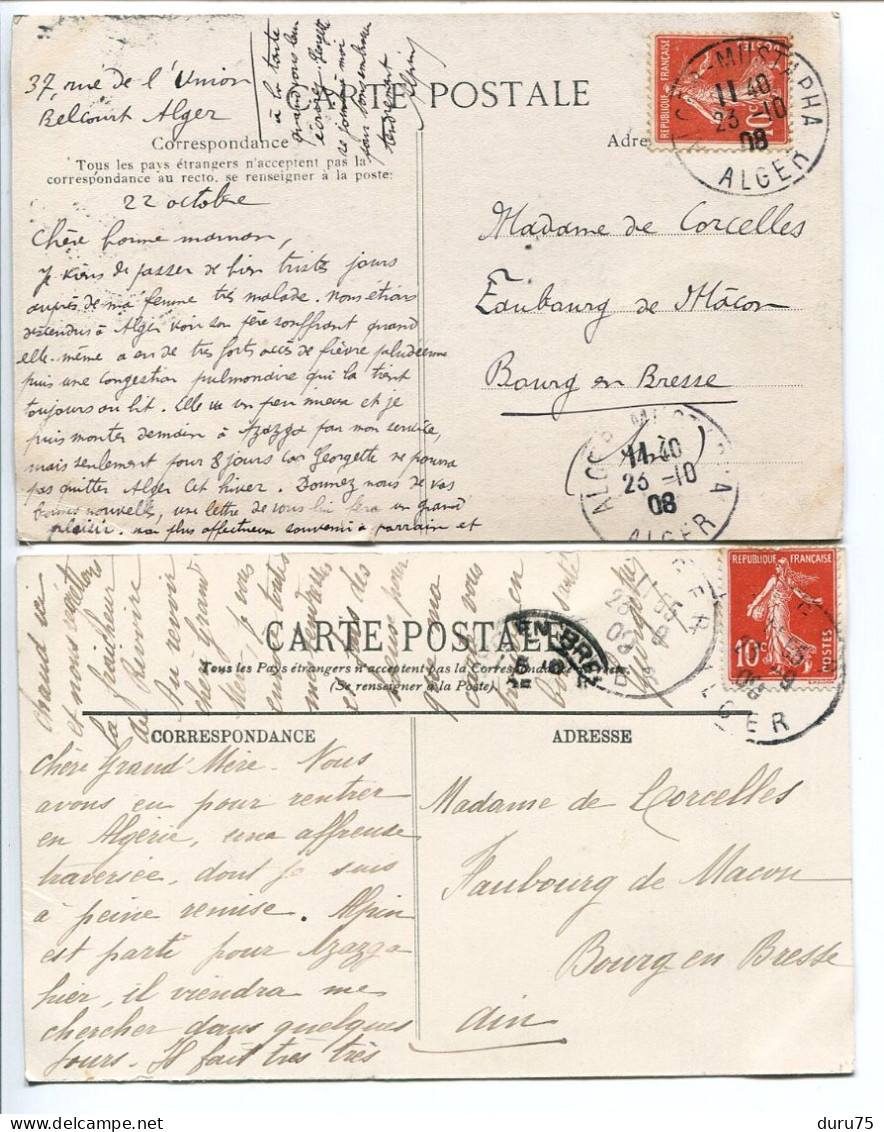 37, rue de l'Union
Belcourt Alger
à la tante
tendrement
Alpin
CARTE POSTALE
Correspondance
Tous les pays étrangers n'acceptent pas la
correspondance au recto, se renseigner à la poste:
RÉPUBLIQUE FRANÇAISE
POSTES
10c
11 40
23 -10
08
ALGER
22 octobre
Chère bonne maman,
Je viens de passer de bien tristes jours
auprès de ma femme très malade. Nous étions
descendus à Alger voir son père souffrant quand
elle-même a eu de très forts accès de fièvre paludéenne
puis une congestion pulmonaire qui la tient
toujours au lit. Elle va un peu mieux et je
puis monter demain à Azazga par mon service,
mais seulement pour 8 jours car Georgette ne pourra
pas quitter Alger cet hiver. Donnez nous de vos
bonnes nouvelles, une lettre de vous lui fera un grand
plaisir. Mon plus affectueux souvenir à parrain et
Madame de Corcelles
Faubourg de Mâcon
Bourg en Bresse
11 40
23 -10
08
ALGER
chaud ici
et nous regrettons
la fraîcheur
du Revoire
Au revoir
chère Grand
Mère, je vous
CARTE POSTALE
Tous les Pays étrangers n'acceptent pas la Correspondance
(Se renseigner à la Poste).
RÉPUBLIQUE FRANÇAISE
10c
POSTES
ALGER
CORRESPONDANCE
ADRESSE
Chère Grand'Mère. Nous
avons eu pour rentrer
en Algérie, une affreuse
traversée, dont je suis
à peine remise. Alpin
est parti pour Azazga
hier, il viendra me
chercher dans quelques
jours. Il fait très très
Madame de Corcelles
Faubourg de Macon
Bourg en Bresse
Ain
duru75